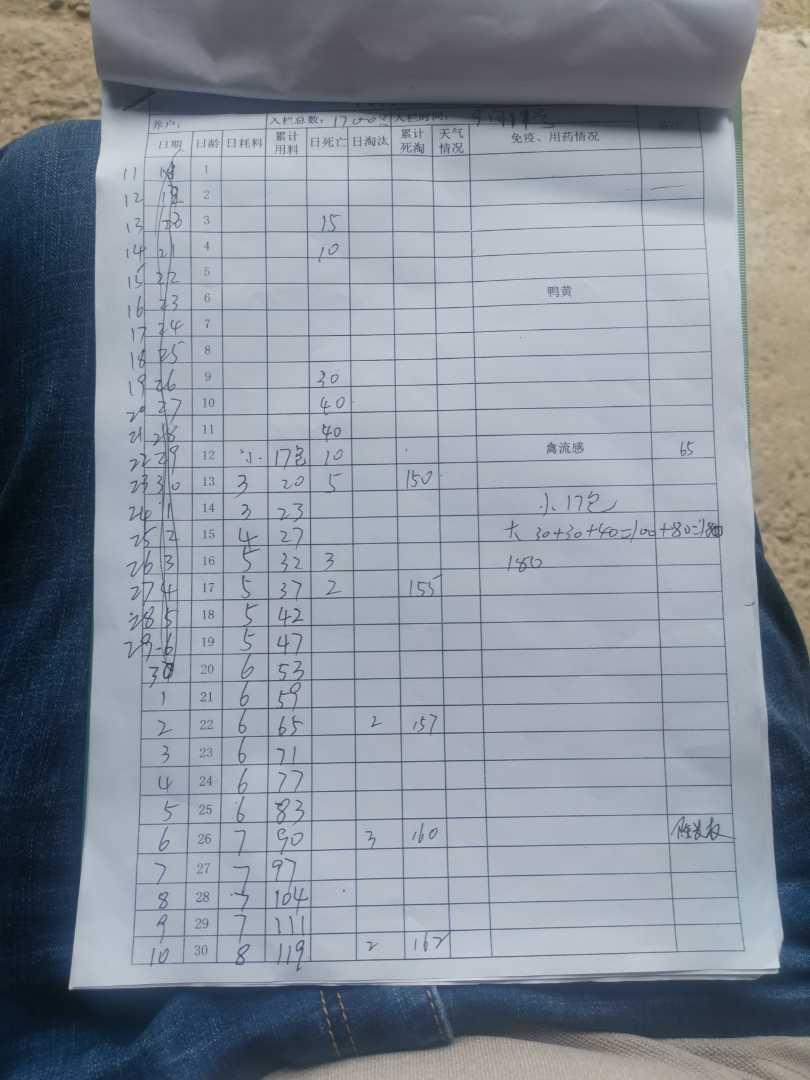 养户: 入栏总数: 入栏时间:
日期 日龄 日耗料 累计用料 日死亡 日淘汰 累计死淘 天气情况 免疫、用药情况
11 1
12 2
13 3 15
14 21 4 10
15 22 5
16 23 6 鸭黄
17 24 7
18 25 8
19 26 9 30
20 27 10 40
21 28 11 40
22 29 12 小 17包 10 禽流感 65
23 30 13 3 20 5 150
24 1 14 3 23 小 17包
25 2 15 4 27 大 30+30+40=100+80=180
26 3 16 5 32 3 180
27 4 17 5 37 2 155
28 5 18 5 42
29 6 19 5 47
30 20 6 53
1 21 6 59
2 22 6 65 2 157
3 23 6 71
4 24 6 77
5 25 6 83
6 26 7 90 3 160
7 27 7 97
8 28 7 104
9 29 7 111
10 30 8 119 2 162